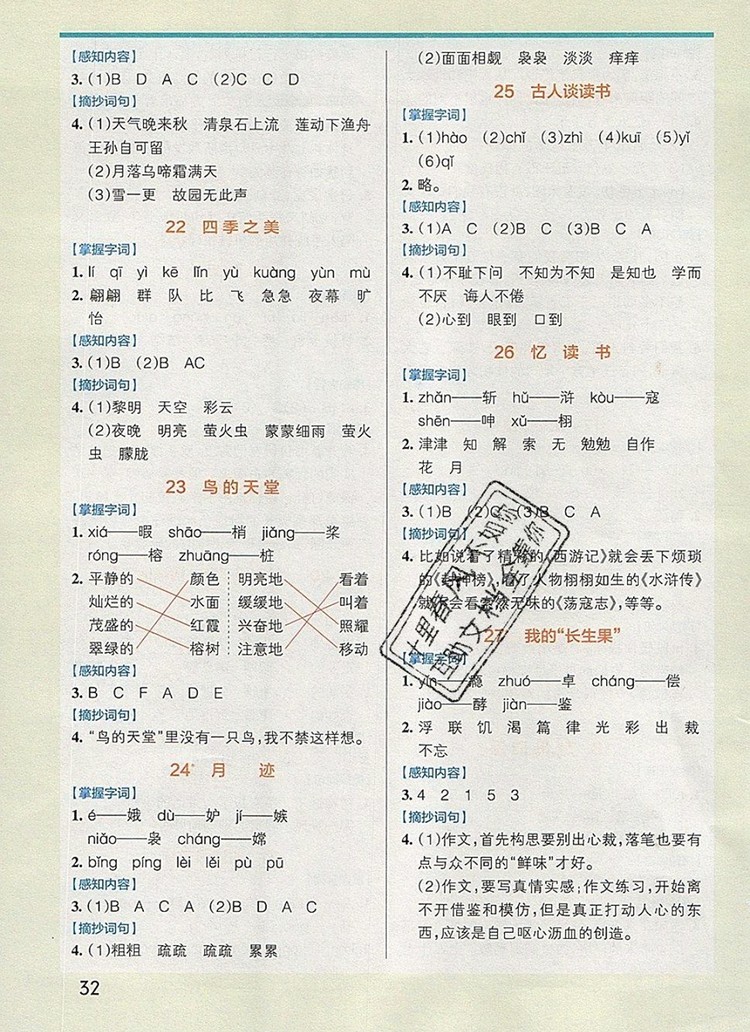 【感知内容】
3.(1)B D A C (2)C C D
【摘抄词句】
4.(1)天气晚来秋 清泉石上流 莲动下渔舟
王孙自可留
(2)月落乌啼霜满天
(3)雪一更 故园无此声
22 四季之美
【掌握字词】
1.lí qī yì kē lǐn yù kuàng yùn mù
2.翩翩 群 队 比 飞 急急 夜幕 旷
怡
【感知内容】
3.(1)B (2)B AC
【摘抄词句】
4.(1)黎明 天空 彩云
(2)夜晚 明亮 萤火虫 蒙蒙细雨 萤火
虫 朦胧
23 鸟的天堂
【掌握字词】
1.xiá——暇 shāo——梢 jiǎng——桨
róng——榕 zhuāng——桩
2.平静的 颜色 明亮地 看着
灿烂的 水面 缓缓地 叫着
茂盛的 红霞 兴奋地 照耀
翠绿的 榕树 注意地 移动
【感知内容】
3.B C F A D E
【摘抄词句】
4.“鸟的天堂”里没有一只鸟,我不禁这样想。
24 月 迹
【掌握字词】
1.é——娥 dù——妒 jí——嫉
niǎo——袅 cháng——嫦
2.bǐng píng lèi lěi pù pū
【感知内容】
3.(1)B A C A (2)B D A C
【摘抄词句】
4.(1)粗粗 疏疏 疏疏 累累
32
(2)面面相觑 袅袅 淡淡 痒痒
25 古人谈读书
【掌握字词】
1.(1)hào (2)chǐ (3)zhì (4)kuī (5)yǐ
(6)qǐ
2.略。
【感知内容】
3.(1)A C (2)B C (3)B C A
【摘抄词句】
4.(1)不耻下问 不知为不知 是知也 学而
不厌 诲人不倦
(2)心到 眼到 口到
26 忆 读 书
【掌握字词】
1.zhǎn——斩 hǔ——浒 kòu——寇
shēn——呻 xǔ——栩
2.津津 知 解 索 无 勉勉 自作
花 月
【感知内容】
3.(1)B (2)C (3)B C A
【摘抄词句】
4.比如说看了精彩的《西游记》就会丢下烦琐
的《封神榜》,看了人物栩栩如生的《水浒传》
就不会看索然无味的《荡寇志》,等等。
27 我的“长生果”
【掌握字词】
1.yǐn——瘾 zhuó——卓 cháng——偿
jiào——酵 jiàn——鉴
2.浮 联 饥 渴 篇 律 光 彩 出 裁
不忘
【感知内容】
3.4 2 1 5 3
【摘抄词句】
4.(1)作文,首先构思要别出心裁,落笔也要有
点与众不同的“鲜味”才好。
(2)作文,要写真情实感;作文练习,开始离
不开借鉴和模仿,但是真正打动人心的东
西,应该是自己呕心沥血的创造。
十里春风不如你
互助文档全靠你